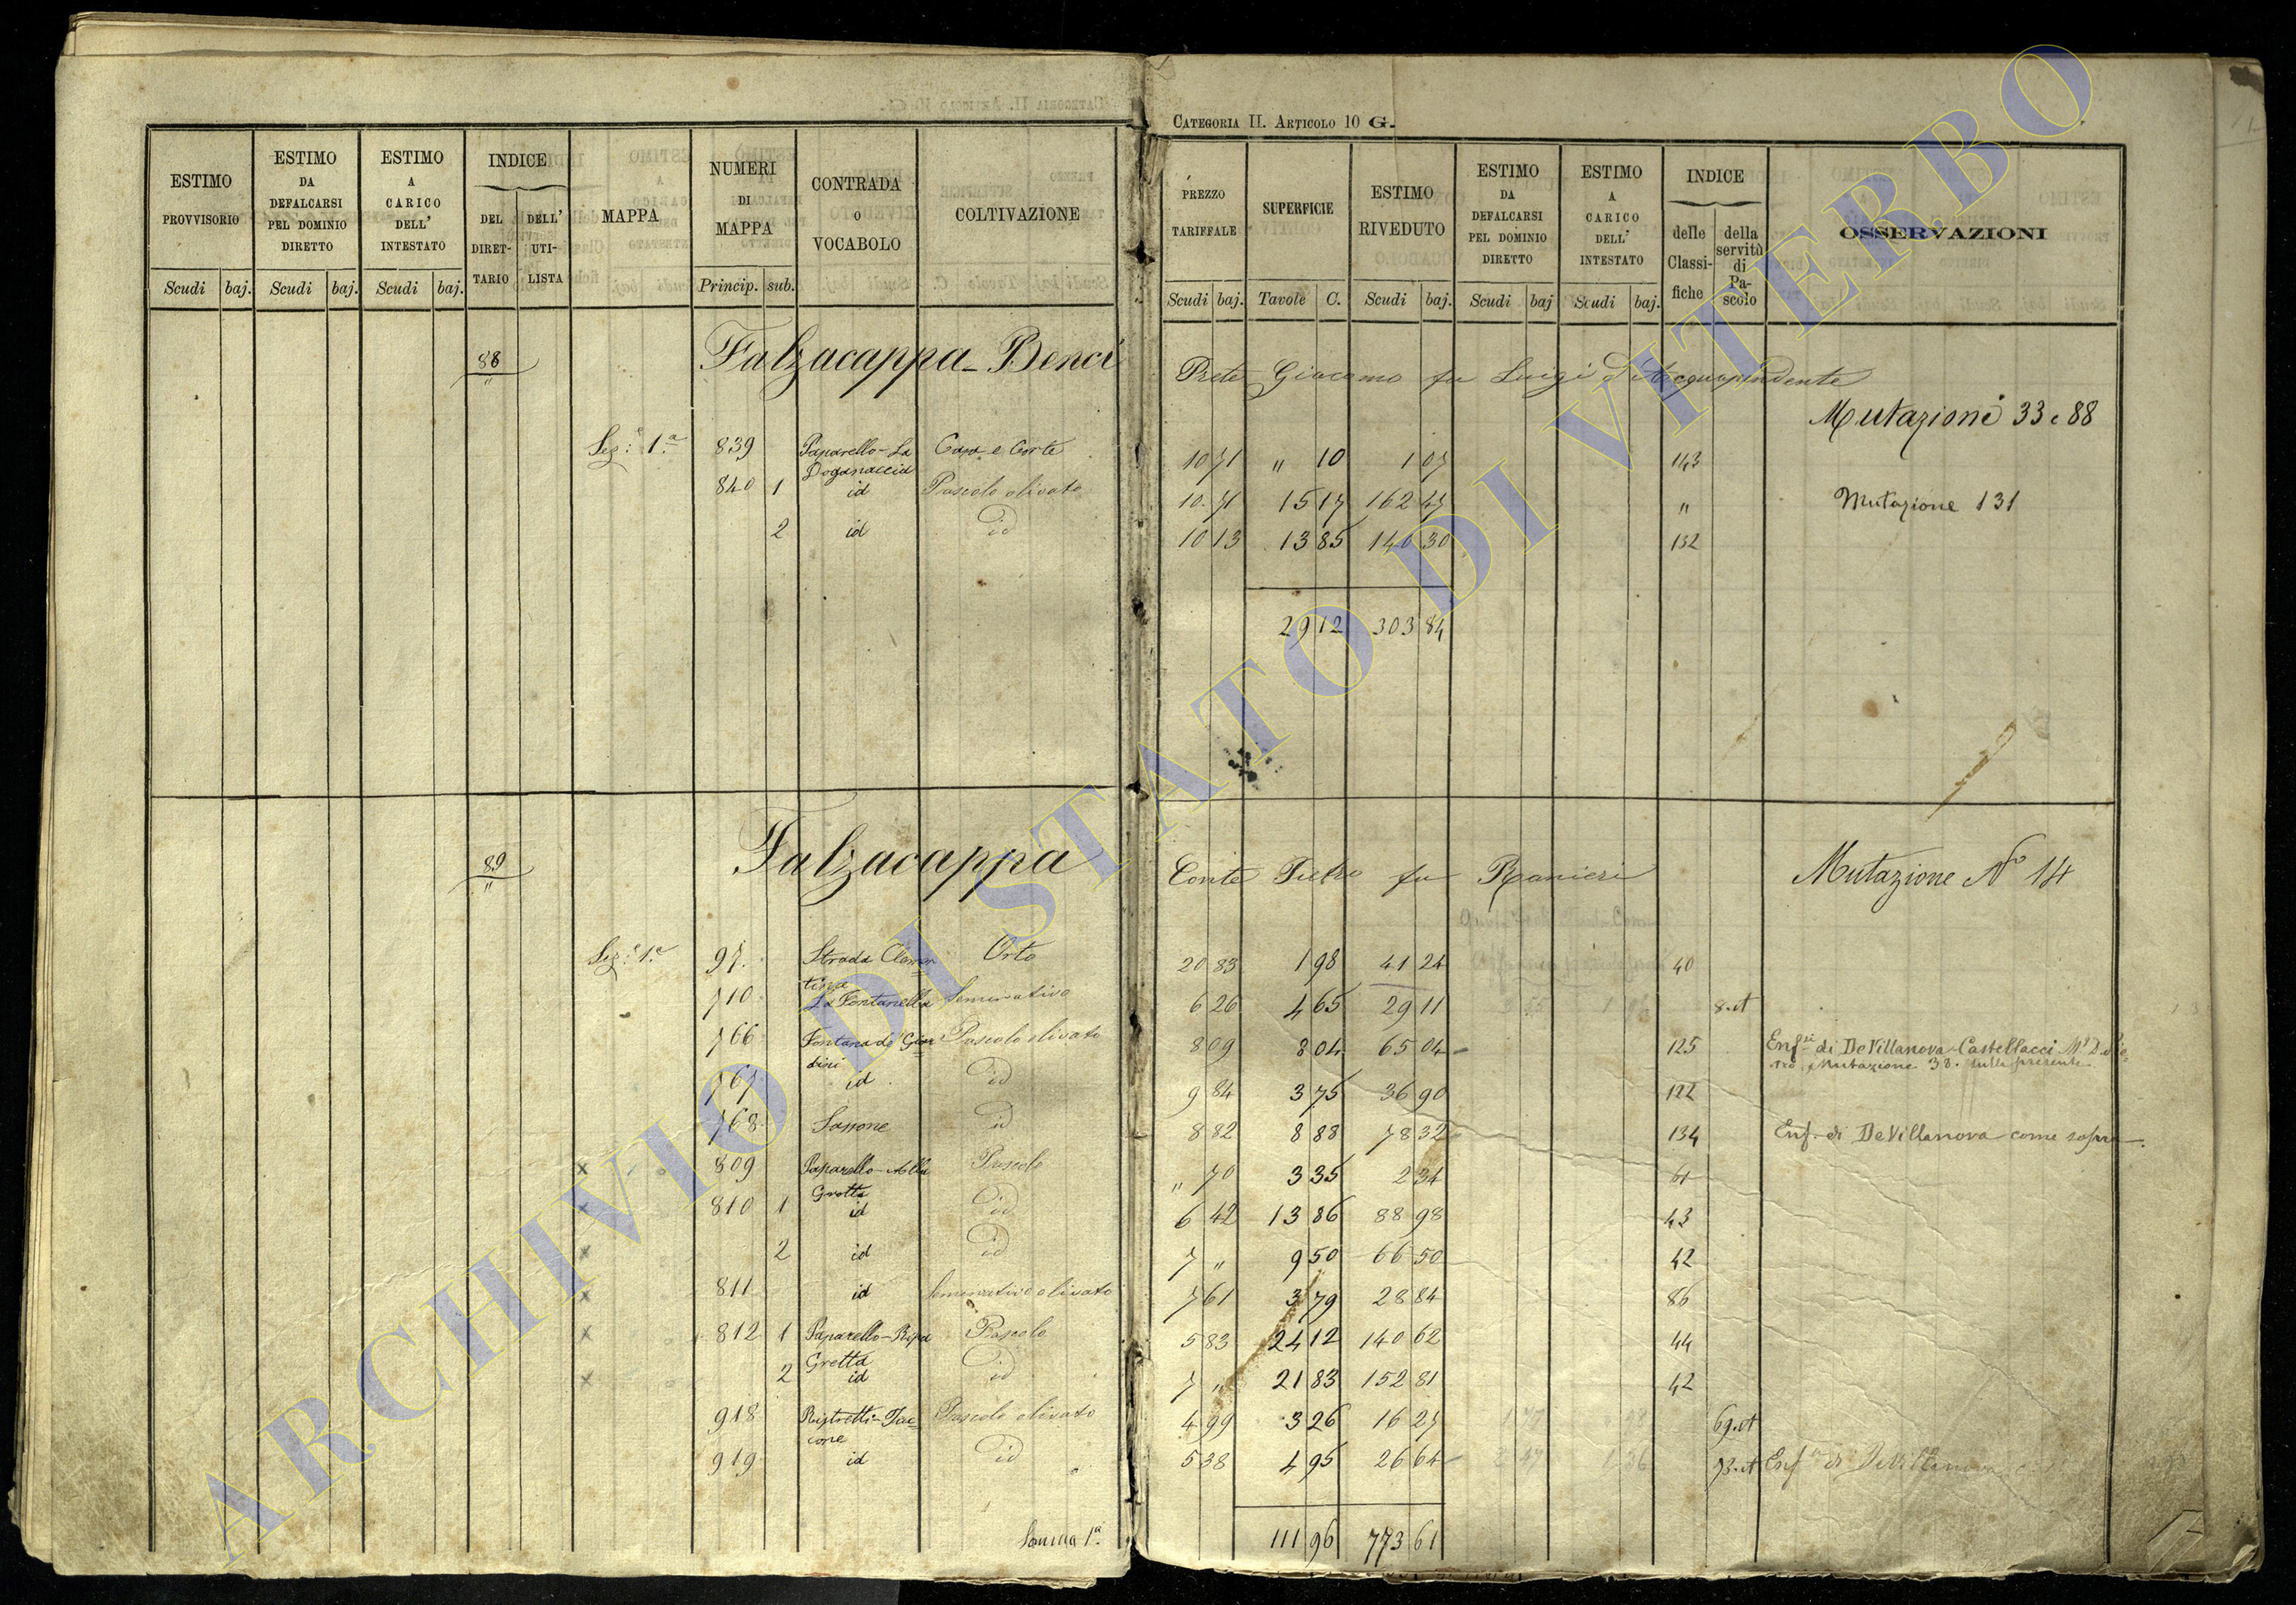 CATEGORIA II. ARTICOLO 10 G.
ESTIMO PROVVISORIO | ESTIMO DA DEFALCARSI PEL DOMINIO DIRETTO | ESTIMO A CARICO DELL' INTESTATO | INDICE DEL DIRETTARIO | DELL' UTILISTA | MAPPA | NUMERI DI MAPPA | CONTRADA O VOCABOLO | COLTIVAZIONE | PREZZO TARIFFALE | SUPERFICIE | ESTIMO RIVEDUTO | ESTIMO DA DEFALCARSI PEL DOMINIO DIRETTO | ESTIMO A CARICO DELL' INTESTATO | INDICE delle Classifiche | della servitù di Pascolo | OSSERVAZIONI
Scudi baj. | Scudi baj. | Scudi baj. | Princip. sub. | Scudi baj. | Tavole C. | Scudi baj. | Scudi baj | Scudi baj.
88 " Falzacappa-Benci Prete Giacomo fu Luigi di Acquapendente
Mutazioni 33 e 88
Sez:e 1.a 839 Paparello-La Doganaccia Casa e Corte 10 71 " 10 1 07 143
840 1 id Pascolo olivato 10. 71 15 17 162 47 " Mutazione 131
2 id id 10 13 13 85 140 30 132
29 12 303 84
89 " Falzacappa Conte Pietro fu Ranieri Mutazione No 14
Sez:e 1.a 97. Strada Clementina Orto 20 83 1 98 41 24 40
710 La Fontanella Seminativo 6 26 4 65 29 11 8.et
766 Fontana de' Giardini Pascolo olivato 8 09 8 04 65 04 125 Enfsi di De Villanova-Castellacci
Mutazione 38. sulle presenti
767 id id 9 84 3 75 36 90 122
768 Sassone id 8 82 8 88 78 32 134 Enf. di De Villanova come sopra
x 809 Paparello-Alla Grotta Pascolo " 70 3 35 2 34 61
x 810 1 id id 6 42 13 86 88 98 43
x 2 id id 7 " 9 50 66 50 42
x 811 id Seminativo olivato 7 61 3 79 28 84 86
x 812 1 Paparello-Ripa Gretta Pascolo 5 83 24 12 140 62 44
x 2 id id 7 " 21 83 152 81 42
918 Ristretti-Taccone Pascolo olivato 4 99 3 26 16 27 69.et
919 id id 5 38 4 95 26 64 73.et Enf.a di De Villanova
Somma 1.a 111 96 773 61
ARCHIVIO DI STATO DI VITERBO